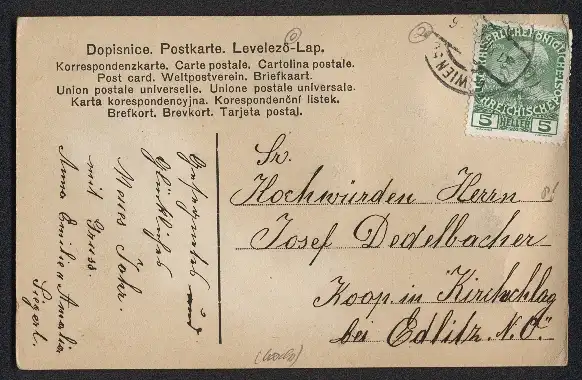 Dopisnice. Postkarte. Levelező-Lap.
Korrespondenzkarte. Carte postale. Cartolina postale.
Post card. Weltpostverein. Briefkaart.
Union postale universelle. Unione postale universale.
Karta korespondencyjna. Korespondenční listek.
Brefkort. Brevkort. Tarjeta postal.
WIEN
5 5
Gesegnetes und
Glückliches
Neues Jahr.
mit Gruss.
Anna Emilie u Amalia
Siegert.
Sr.
Hochwürden Herrn
Josef Dedelbacher
Koop. in Kirchschlag
bei Edlitz N.Ö."